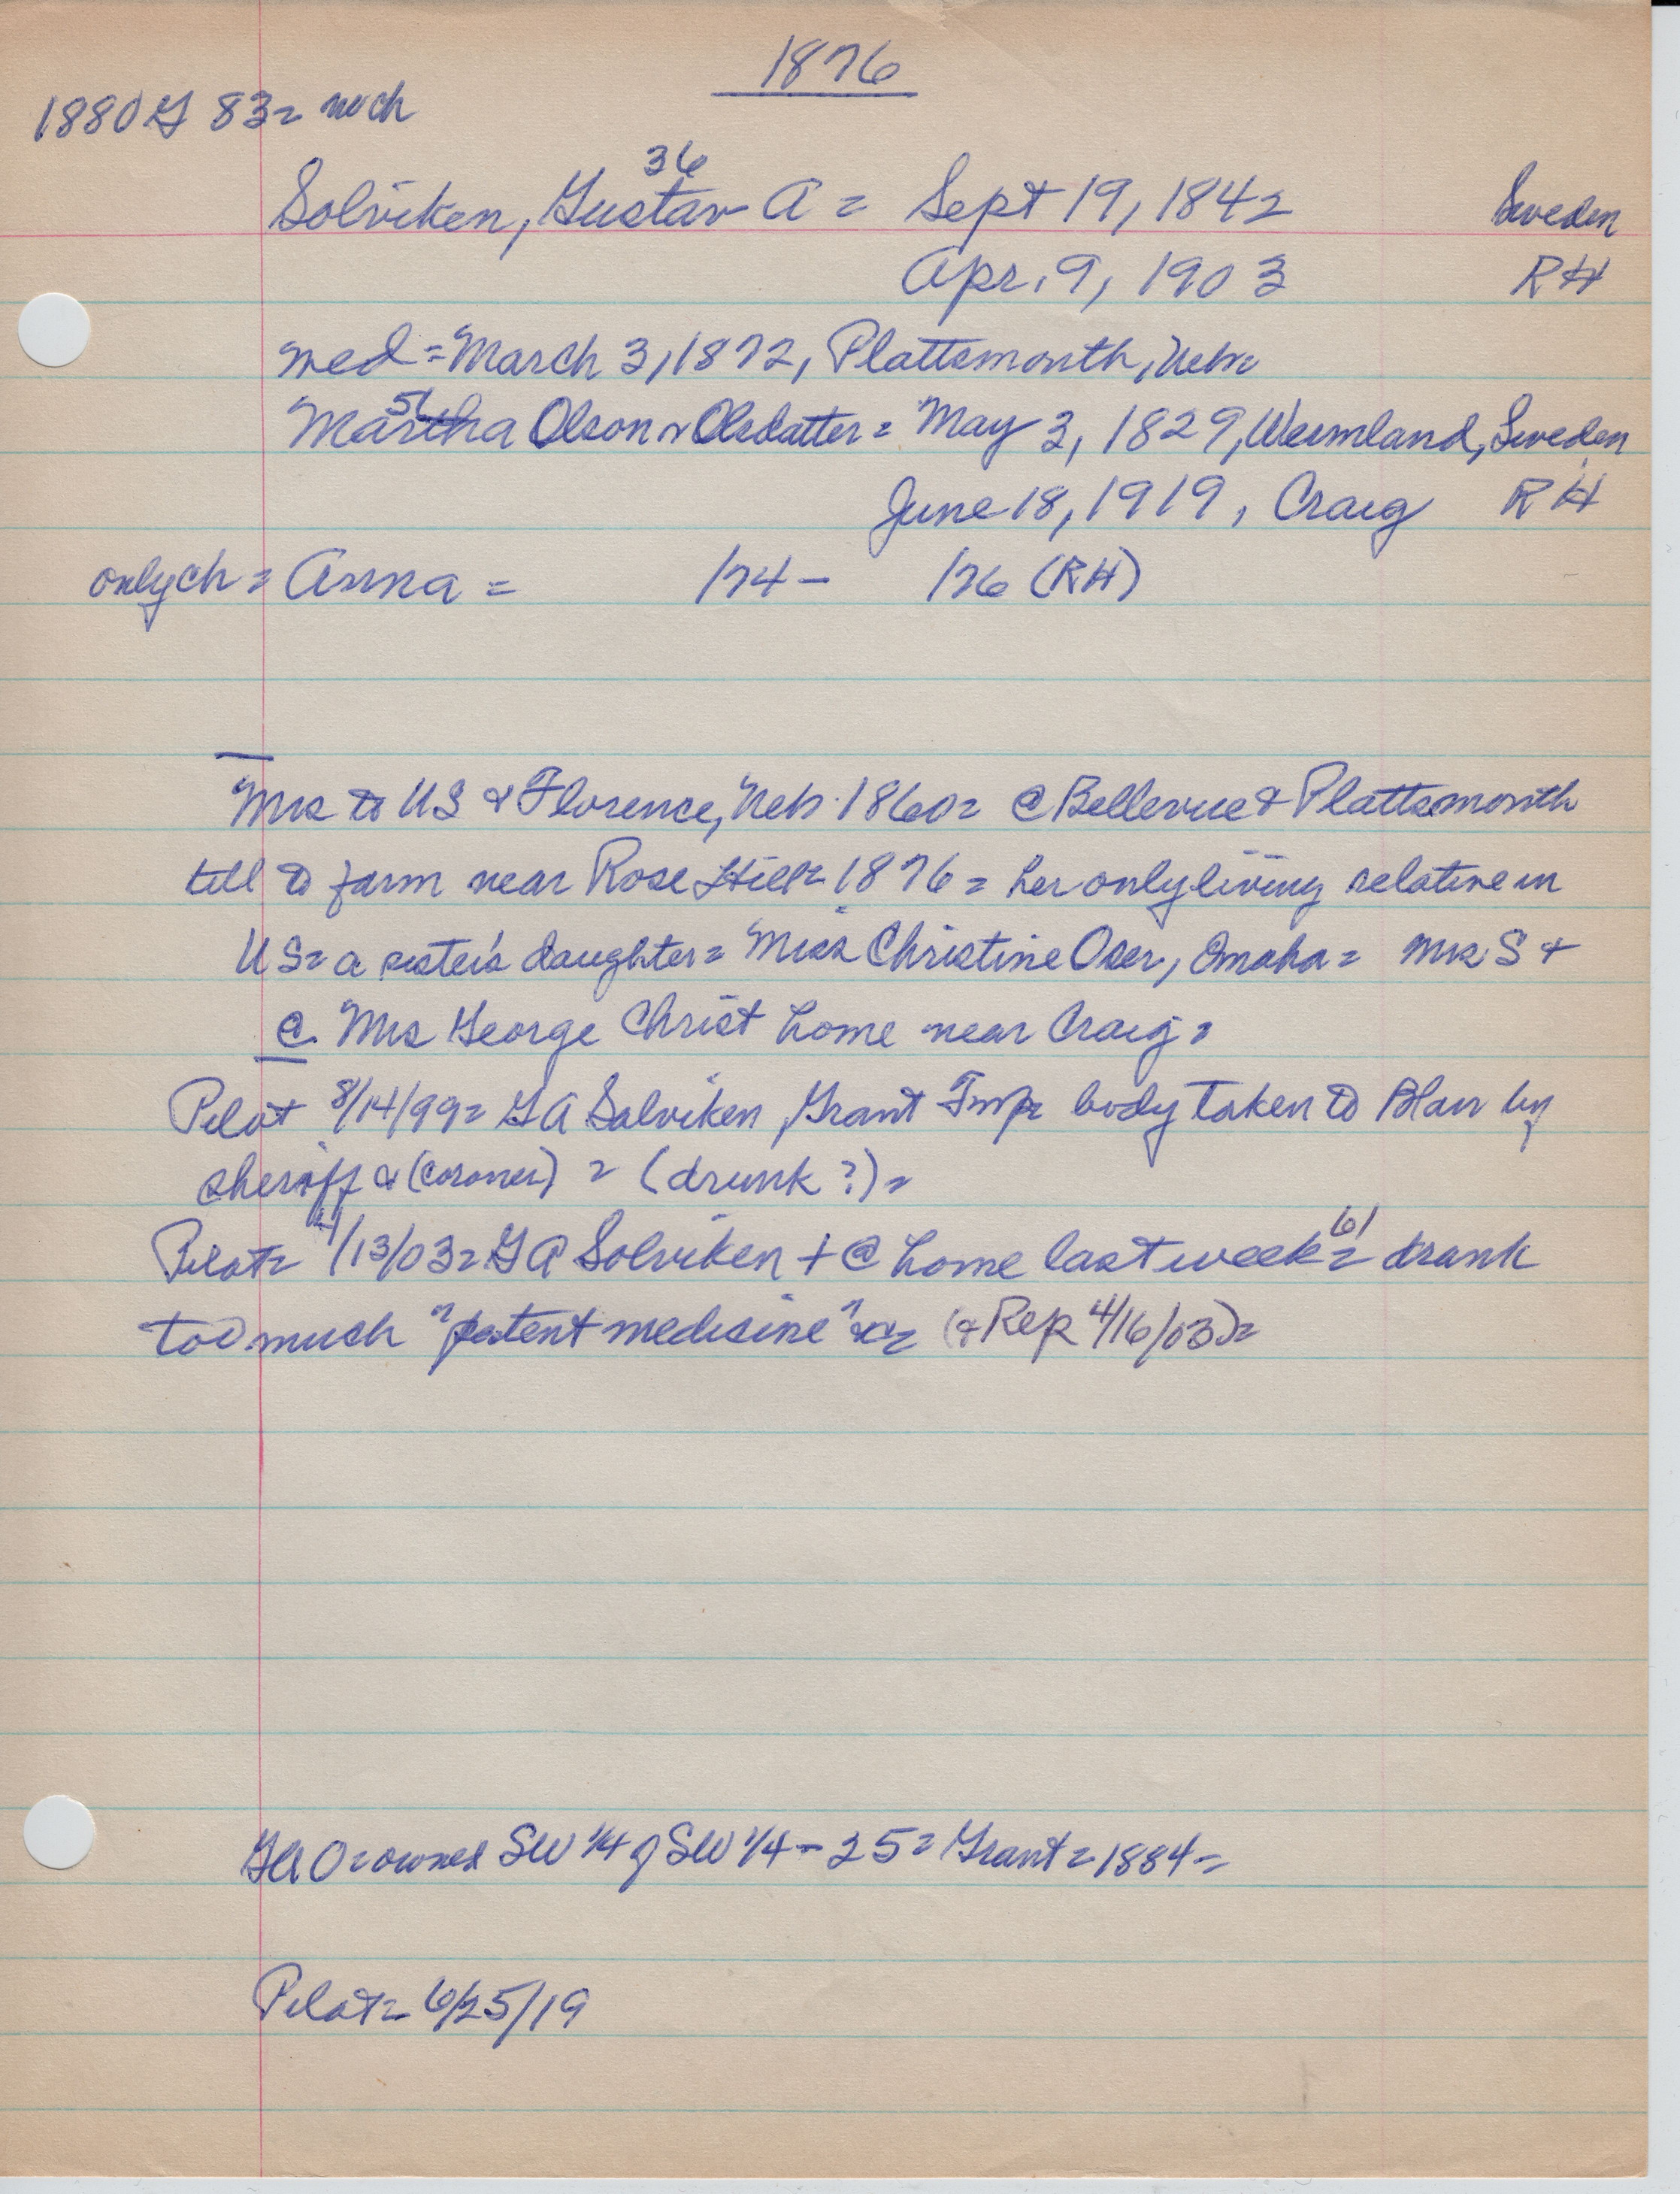 1876
1880 G 83 = no ch
36
Solviken, Gustav A = Sept 19, 1842 Sweden
Apr. 9, 1903 RH
med = March 3, 1872, Plattsmouth, Nebr
51
Martha Olson or Olsdatter = May 3, 1829, Wermland, Sweden
June 18, 1919, Craig RH
only ch = Anna = /74 - /76 (RH)
Mrs to US & Florence, Neb. 1860 = @ Bellevue & Plattsmouth
till to farm near Rose Hill = 1876 = her only living relative in
US = a sister's daughter = Miss Christine Oser, Omaha = Mrs S +
@ Mrs George Christ home near Craig =
Pilot 8/14/99 = G A Solviken, Grant Twp = body taken to Blair by
sheriff & (coroner) = (drunk ?) =
Pilot = 4/13/03 = G A Solviken + @ home last week = 61 drank
too much "patent medicine" &c = (& Rep 4/16/03) =
GA O = owned SW 1/4 of SW 1/4 - 25 = Grant = 1884 =
Pilot = 6/25/19